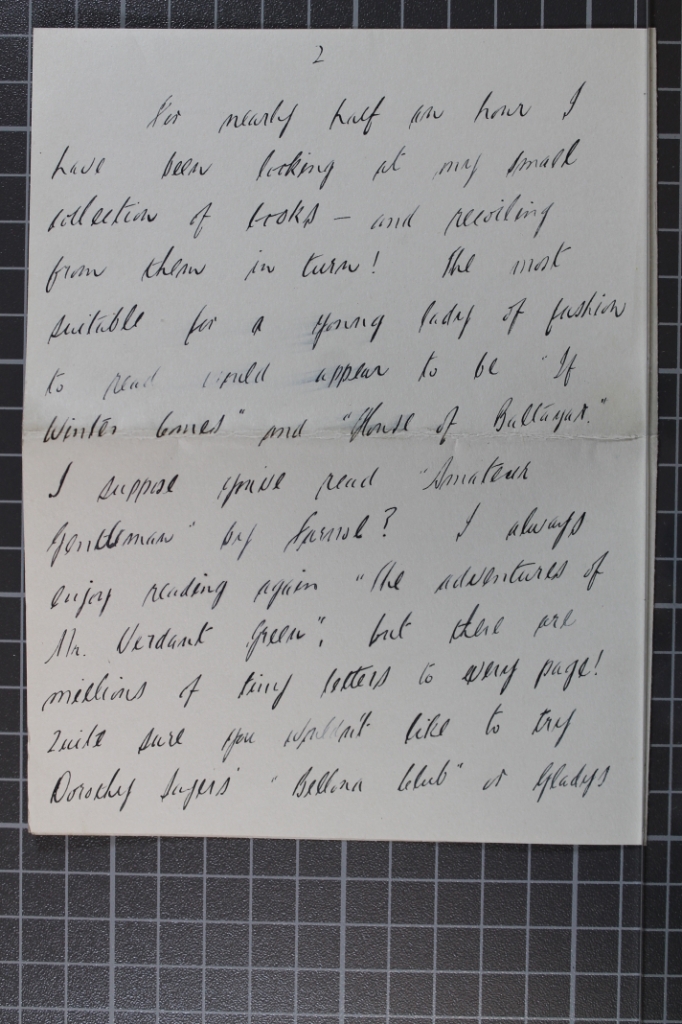 2
For nearly half an hour I
have been looking at my small
collection of books – and recoiling
from them in turn! The most
suitable for a young lady of fashion
to read would appear to be "If
Winter Comes" and "House of Baltazar."
I suppose you've read "Amateur
Gentleman" by Farnol? I always
enjoy reading again "The adventures of
Mr. Verdant Green", but there are
millions of tiny letters to every page!
Quite sure you wouldn't like to try
Dorothy Sayers' "Bellona Club" or Gladys